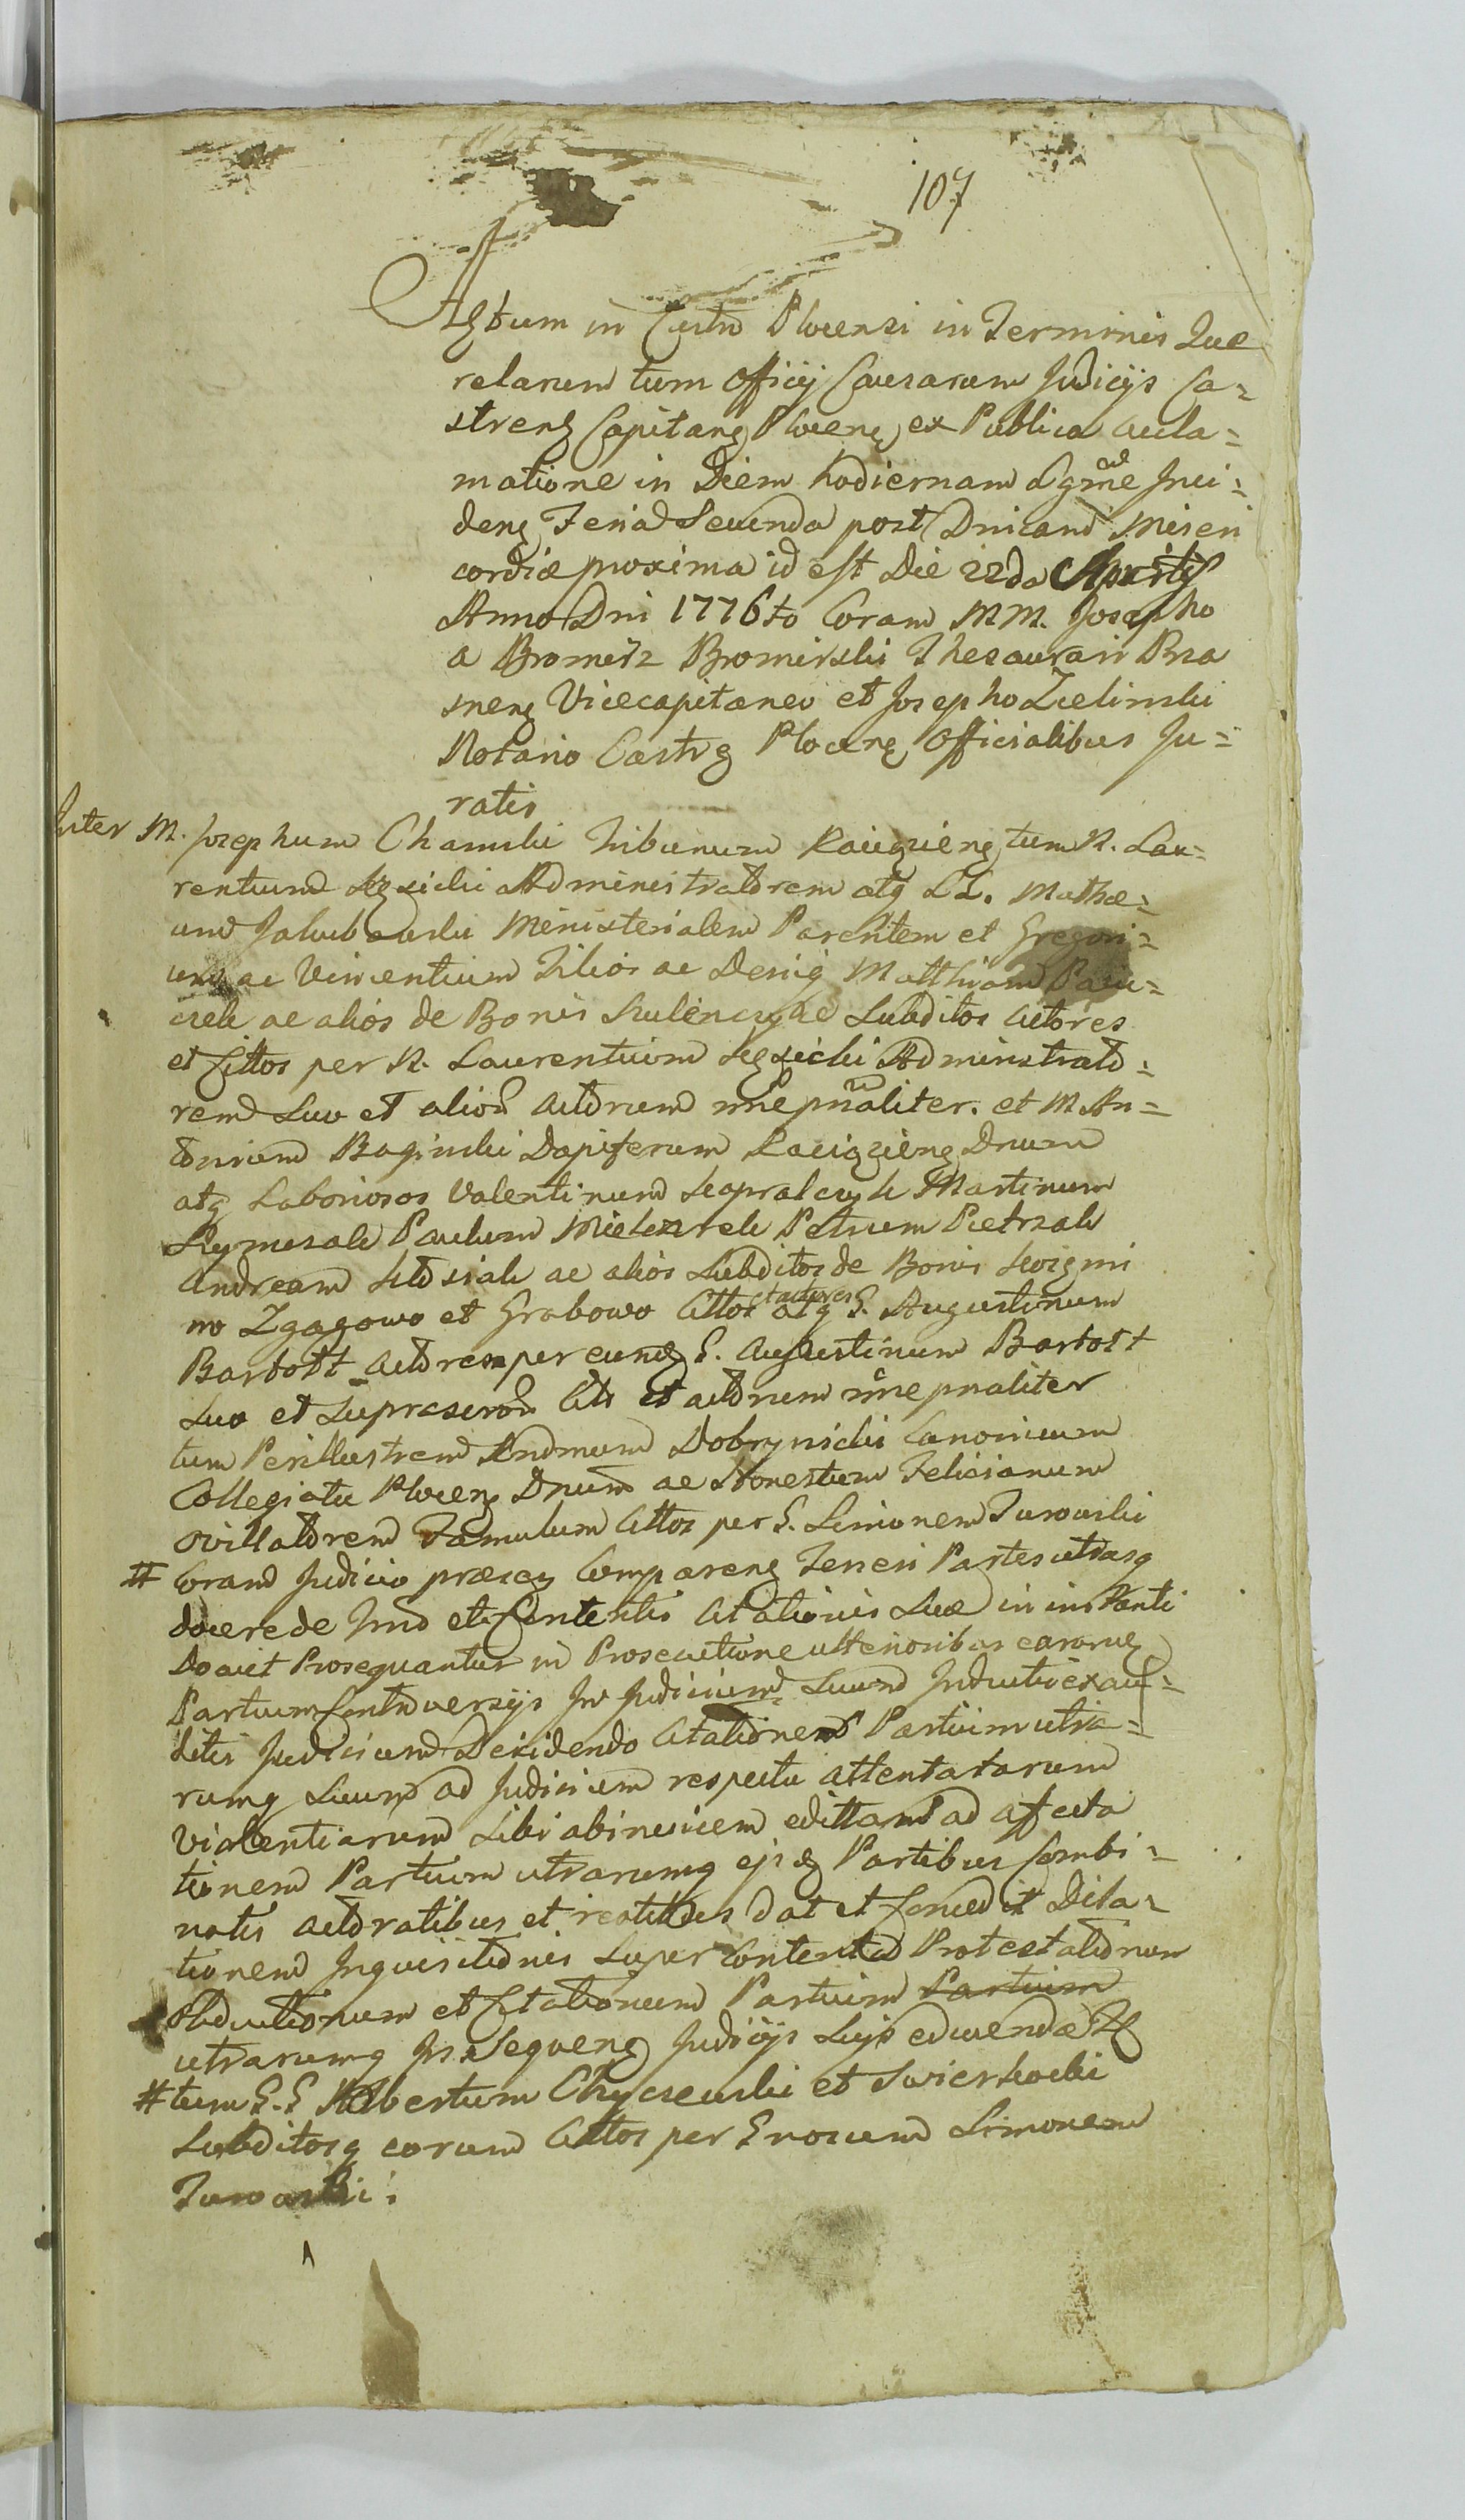 107
Actum in Castro Plocensi in Terminis Que
relarum tum Officij Causarum Judicijs Ca=
strenz Capitanz Plocenz ex Publica accla=
matione in Diem hodiernam Lgme Inci=
denz Feria Secunda post Dnicam Miseri
cordiæ proxima id est Die 22da Aprilis
Anno Dni 1776to Coram MM. Josepho
a Bromierz Bromirski Thesaurario Pra
snenz Vicecapitaneo et Josepho Zielinski
Notario Castrz Plocenz Officialibus Ju=
ratis
Inter M. Josephum Chamski Tribunum Raciązienz tum R. Lau=
rentium Administratorem atq LL. Mathæ=
um Jakubowski Ministerialem Parentem et Gregori=
um ac Vincentium Filios ac Deniq Matthiam
ac alios de Bonis Subditos actores
et Cittos per R. Laurentium Administrato=
rem Suo et alior Actorum nne pnaliter. et M. An=
tonium Baginski Dapiferum Raciązienz Dnum
atq Laboriosos Valentinum Martinum
Szymczak Paulum Petrum Pietrzak
Andream ac alios Subditos de Bonis
no Zgagowo et Grabowo Cittos et actores atq G. Augustinum
Bartolt Actores per eundz G. Augustinum Bartolt
Suo et Citt et actorum nne pnaliter
tum Perillustrem Rndmum Dobrzynicki Canonicum
Collegiatu Plocenz Dnum ac Honestum Felicianum
Famulum Cittos per G. Simonem Turowski
# Coram Judicio præsen Comparenz Teneri Partes utrasq
docere de Imo et Contentis Citationis Suæ in instanti
Docuit Prosequantur in Prosecutione ulterioribus earundz
Partium Controversijs In Judicium Suum Inductis exau=
ditis Judicium Decidendo Citationem Partium utra=
rumq Suum ad Judicium respectu attentatarum
violentiarum Sibi abinvicem edittam ad affecta
tionem Partium utrarumq ejsdz Partibus Combi=
natis actoratibus et reatibus dat et Concedit Dila=
tionem Inquisitionis Super Contenta Protestationum
Obductionum et Citationum Partium Partium
utrarumq In Sequenz Judicijs Suis educendæ
# tum G. G. Albertum Chyczewski et Swierkocki
Subditosq eorum Cittos per Gnosum Simonem
Turowski.